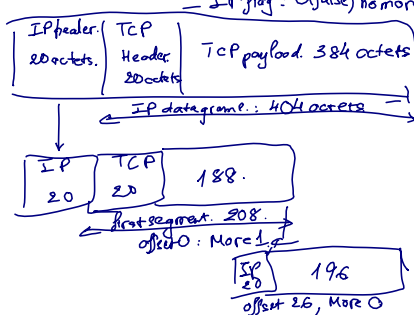 IP flag: 0(false) no mor
IP header. TCP
20 octets. Header 20 octets
TCP payload. 384 octets
IP datagrame.: 404 octets
IP TCP 188.
20 20
first segment. 208.
offset 0 : More 1.
IP 20 196
offset 26, More 0